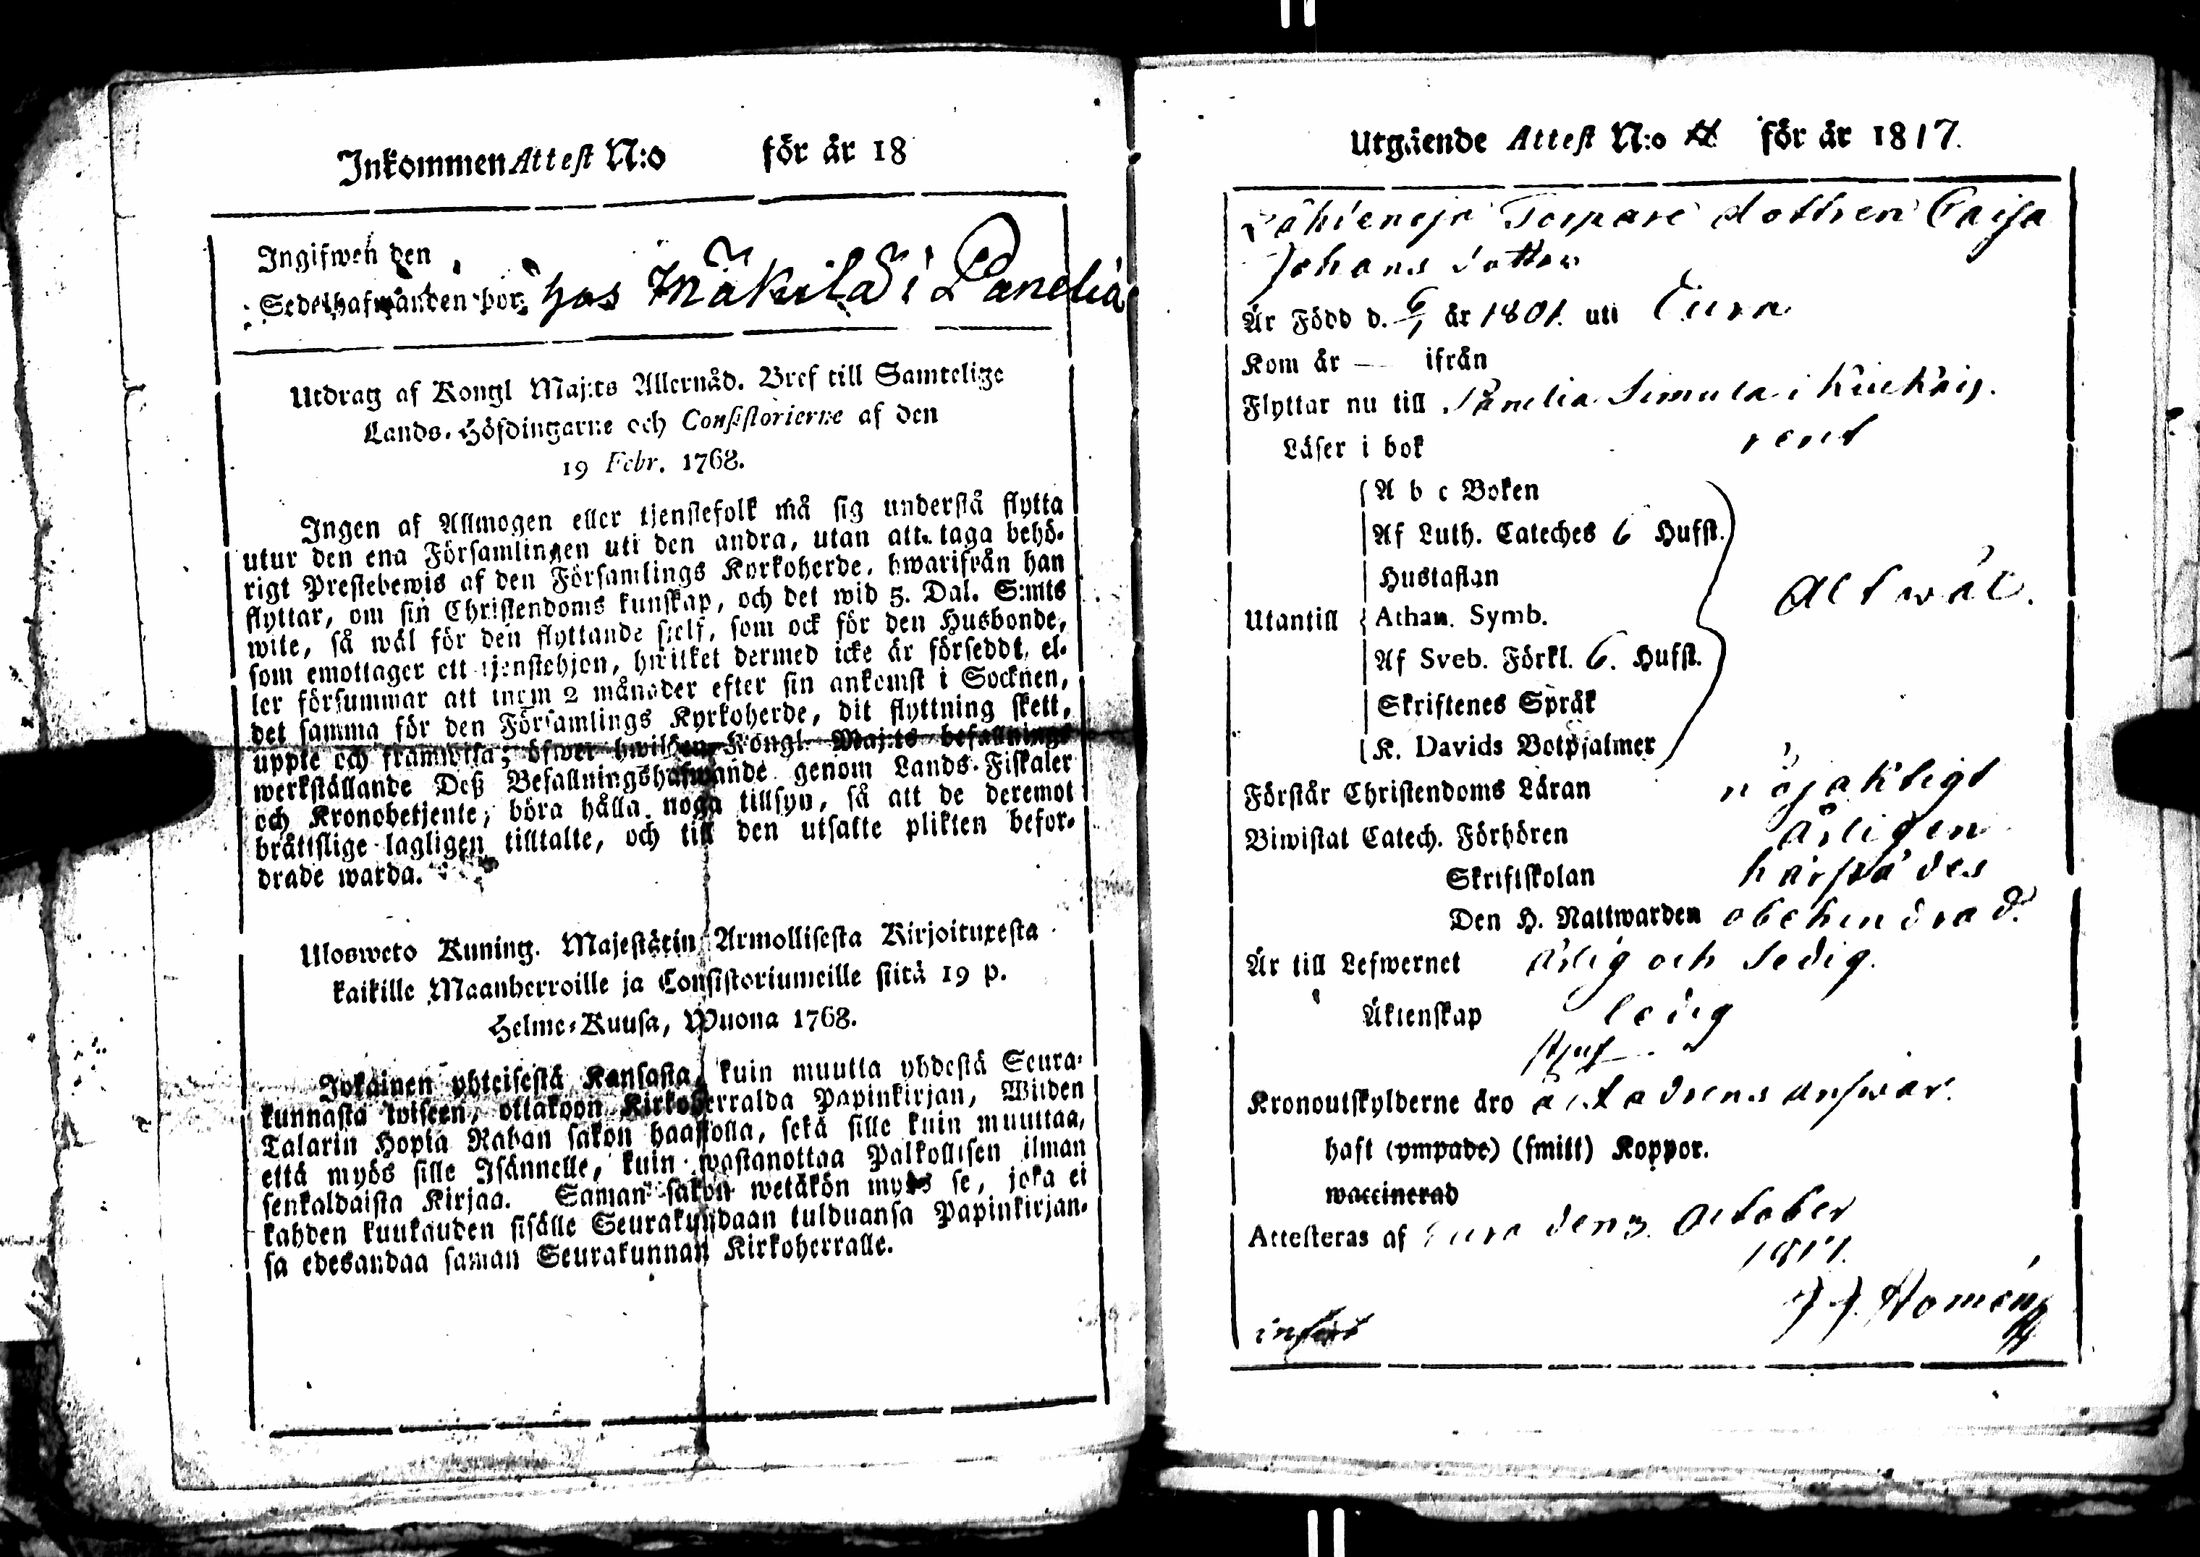 Inkommen Attest N:o för år 18
Ingifwen den
Sedelhafwanden bor hos Mäkilä i Panelia
Utdrag af Kongl Maj:ts Allernåd. Bref till Samtelige
Lands-Höfdingarne och Consistorierne af den
19 Febr. 1768.
Ingen af Allmogen eller tjenstefolk må sig understå flytta
utur den ena Församlingen uti den andra, utan att taga behö-
rigt Prestebewis af den Församlings Kyrkoherde, hwarifrån han
flyttar, om sin Christendoms kunskap, och det wid 5. Dal. S:mts
wite, så wäl för den flyttande sjelf, som ock för den Husbonde,
som emottager ett tjenstehjon, hwilket dermed icke är förseddt, el-
ler försummar att inom 2 månader efter sin ankomst i Socknen,
det samma för den Församlings Kyrkoherde, dit flyttning skett,
uppte och framwisa; öfwer hwilken Kongl. Maj:ts befallnings
werkställande Deß Befallningshafwande genom Lands-Fiskaler
och Kronobetjente, böra hålla noga tillsyn, så att de deremot
bråttslige lagligen tilltalte, och till den utsatte plikten befor-
drade warda.
Ulosweto Kuning. Majestätin Armollisesta Kirjoituxesta
kaikille Maanherroille ja Consistoriumeille siitä 19 p.
Helme-Kuusa, Wuona 1768.
Jokainen yhteisestä Kansasta, kuin muutta yhdestä Seura-
kunnasta toiseen, ottakoon Kirkoherralda Papinkirjan, Wiiden
Talarin Hopia Rahan sakon haastolla, sekä sille kuin muuttaa,
että myös sille Isännelle, kuin wastanottaa Palkollisen ilman
senkaldaista Kirjaa. Saman sakon wetäkön myös se, joka ei
kahden kuukauden sisälle Seurakundaan tulduansa Papinkirjan-
sa edesandaa saman Seurakunnan Kirkoherralle.
Utgående Attest N:o för år 1817.
Lähteenoja Torpare dottren Caisa
Johans dotter
Är Född d. 6/1 år 1801. uti Eura
Kom år — ifrån
Flyttar nu till Panelia Simula i Kiukais.
Läser i bok rent
A b c Boken
Af Luth. Cateches 6 Hufst.
Hustaflan
Utantill Athan. Symb. Alt wäl.
Af Sveb. Förkl. 6. Hufst.
Skriftenes Språk
K. Davids Botpsalmer
Förstår Christendoms Läran nöjaktigt
Biwistat Catech. Förhören årligen
Skriftskolan härstädes
Den H. Nattwarden obehindrad.
Är till Lefwernet ärlig och sedig.
Äktenskap ledig
Kronoutskylderne äro å ansvar.
haft (ympade) (smitt) Koppor.
waccinerad
Attesteras af Eura den 3. October
1817.
J J. Homén
infört